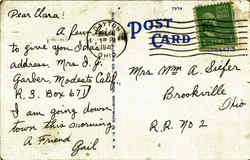 Dear Clara!
A few
to give you Ida's
address. Mrs. I. J.
Garber, Modesto Calif.
R. 3. Box 671
I am going down
town this morning
A Friend
Gail
DAYTON
OHIO
POST
CARD
Mrs Wm A. Siefer
Brookville
Ohio
R.R. No 2